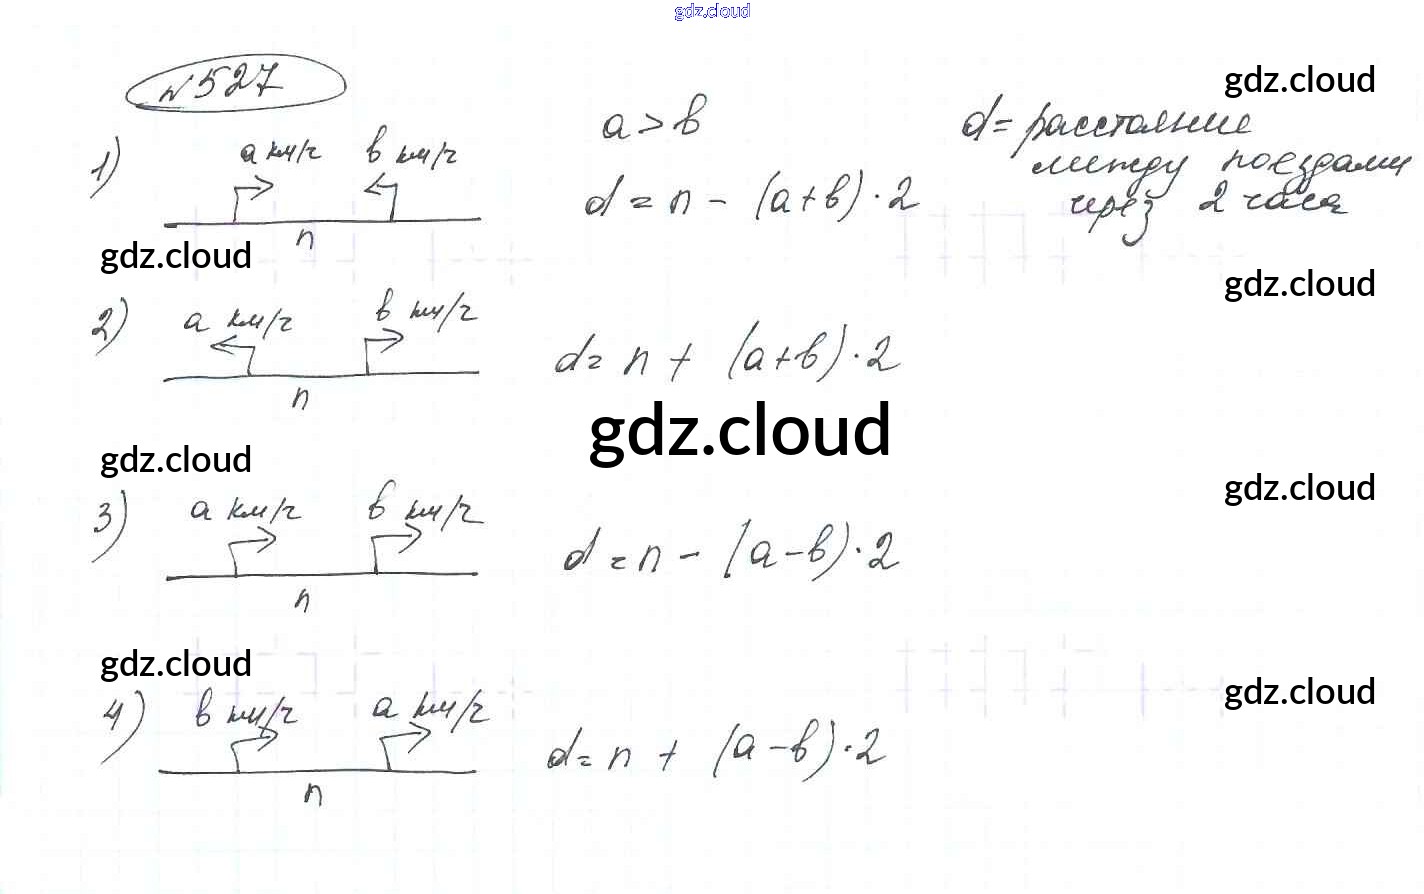 gdz.cloud
№ 527
gdz.cloud
1) а км/ч в км/ч
n
a > в
d = n - (a+в)·2
d = расстояние
между поездами
через 2 часа
gdz.cloud
gdz.cloud
2) а км/ч в км/ч
n
d = n + (a+в)·2
gdz.cloud
gdz.cloud
gdz.cloud
3) а км/ч в км/ч
n
d = n - (a-в)·2
gdz.cloud
gdz.cloud
4) в км/ч а км/ч
n
d = n + (a-в)·2